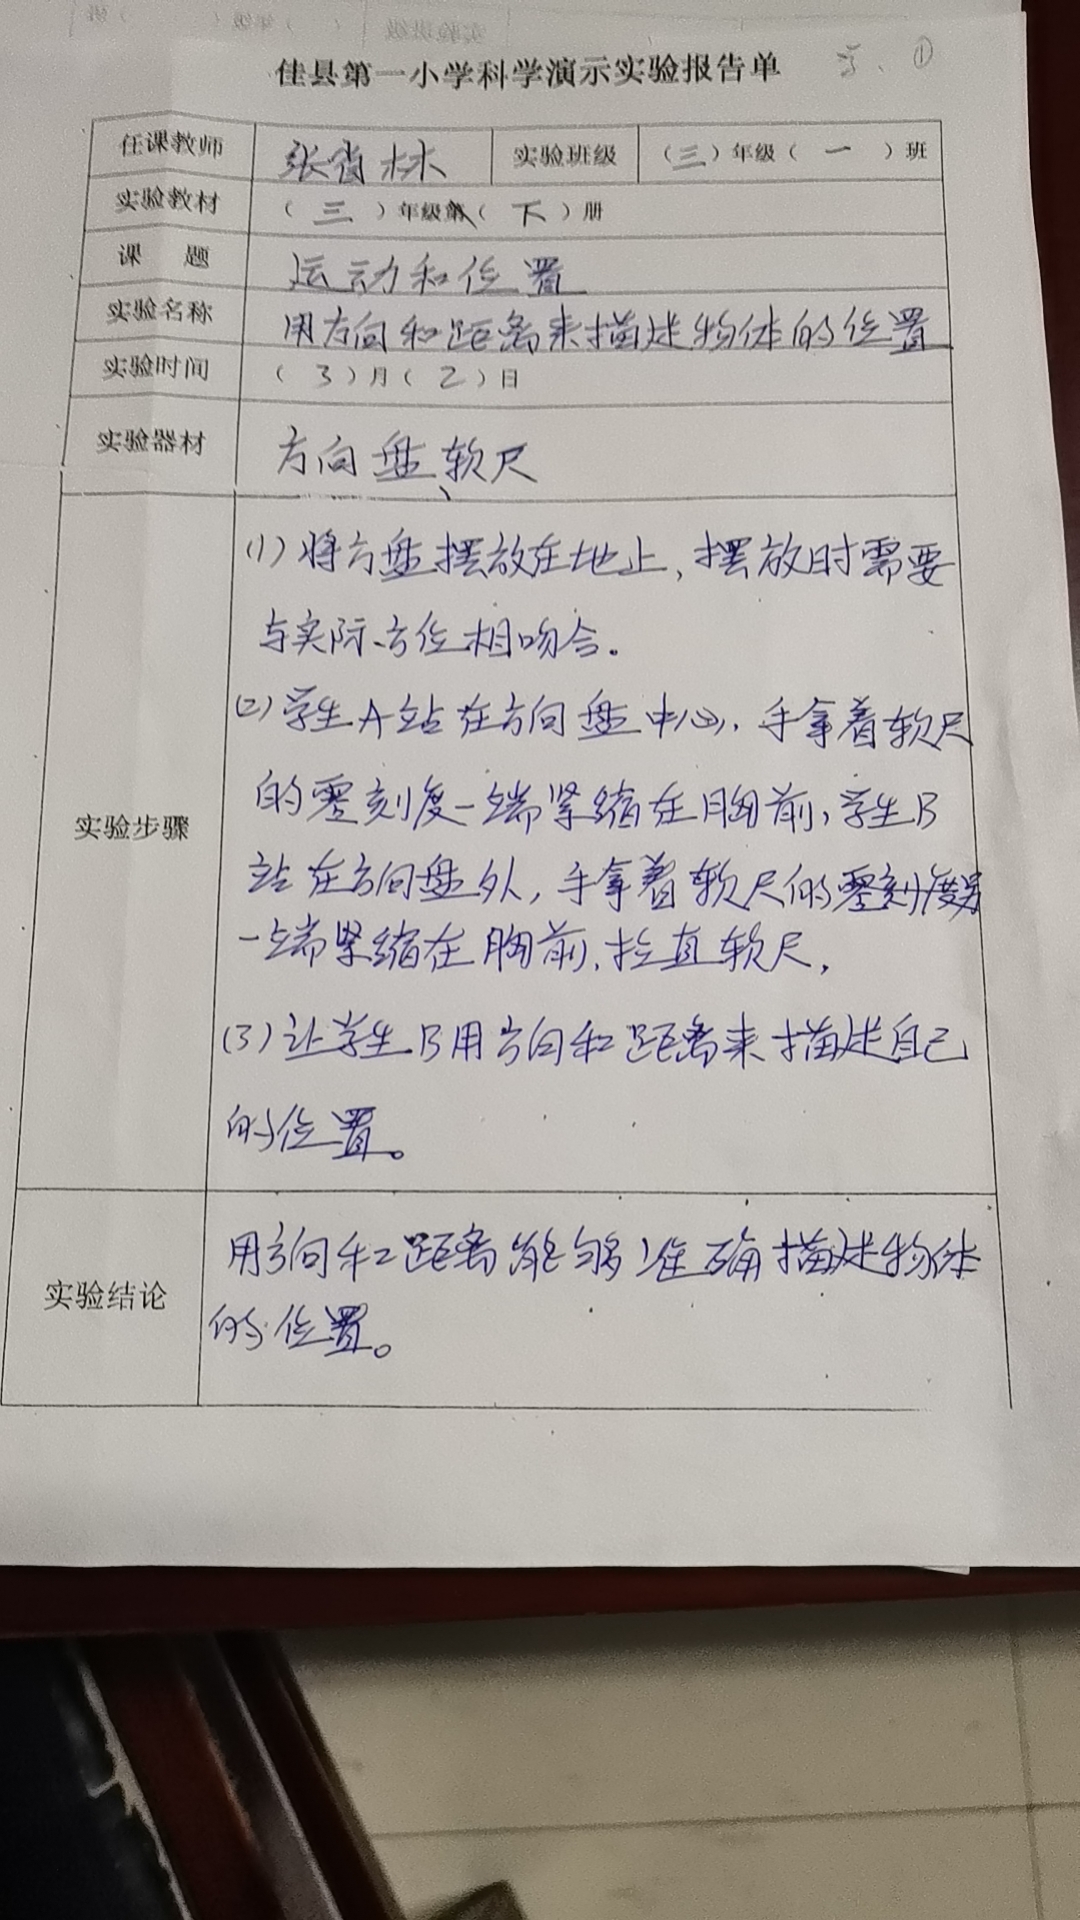 佳县第一小学科学演示实验报告单
任课教师 张肖林 实验班级 （三）年级（一）班
实验教材 （三）年级第（下）册
课 题 运动和位置
实验名称 用方向和距离来描述物体的位置
实验时间 （3）月（2）日
实验器材 方向盘、软尺
(1)将方盘摆放在地上,摆放时需要
与实际方位相吻合。
(2)学生A站在方向盘中心,手拿着软尺
的零刻度一端紧缩在胸前,学生B
站在方向盘外,手拿着软尺的零刻度另
实验步骤
一端紧缩在胸前,拉直软尺,
(3)让学生B用方向和距离来描述自己
的位置。
实验结论
用方向和距离能够准确描述物体
的位置。